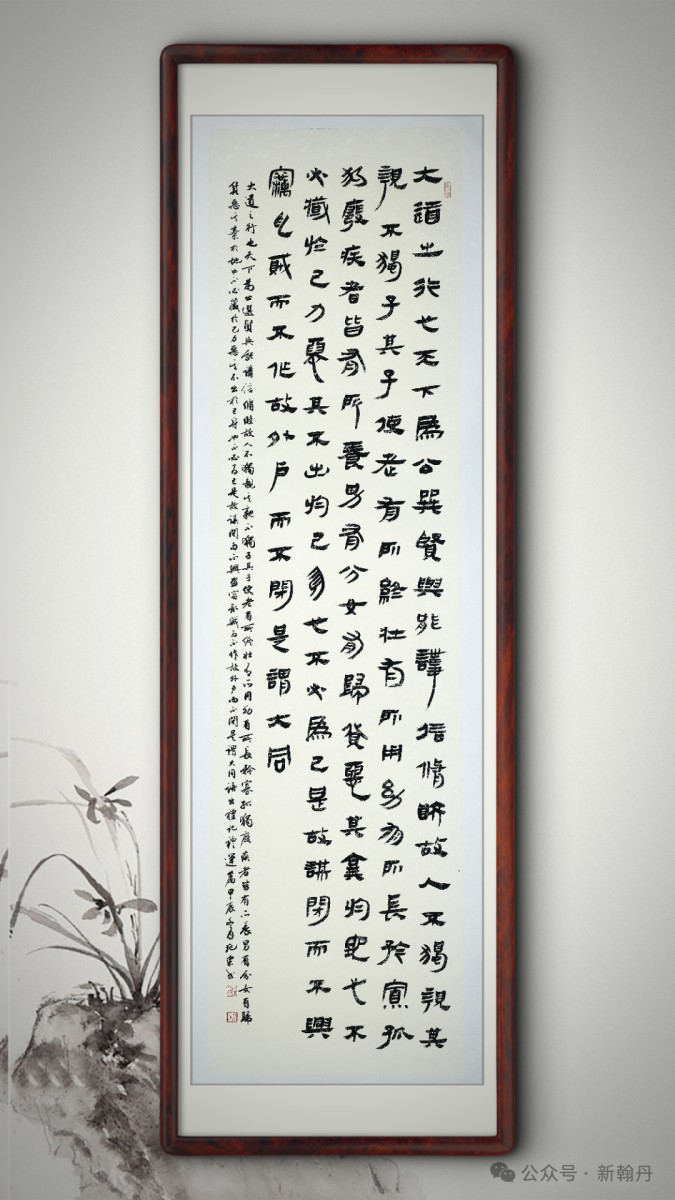 大道之行也天下為公選賢與能講信脩睦故人不獨親其
親不獨子其子使老有所終壯有所用幼有所長矜寡孤
獨廢疾者皆有所養男有分女有歸貨惡其棄於地也不
必藏於己力惡其不出於己身也不必為己是故謀閉而不興
竊亂賊而不作故外戶而不閉是謂大同
大道之行也天下為公選賢與能講信脩睦故人不獨親其親不獨子其子使老有所終壯有所用幼有所長矜寡孤獨廢疾者皆有所養男有分女有歸
貨惡其棄於地也不必藏於己力惡其不出於己身也不必為己是故謀閉而不興盜竊亂賊而不作故外戶而不閉是謂大同語出禮記禮運篇甲辰冬月書
公众号·新翰丹